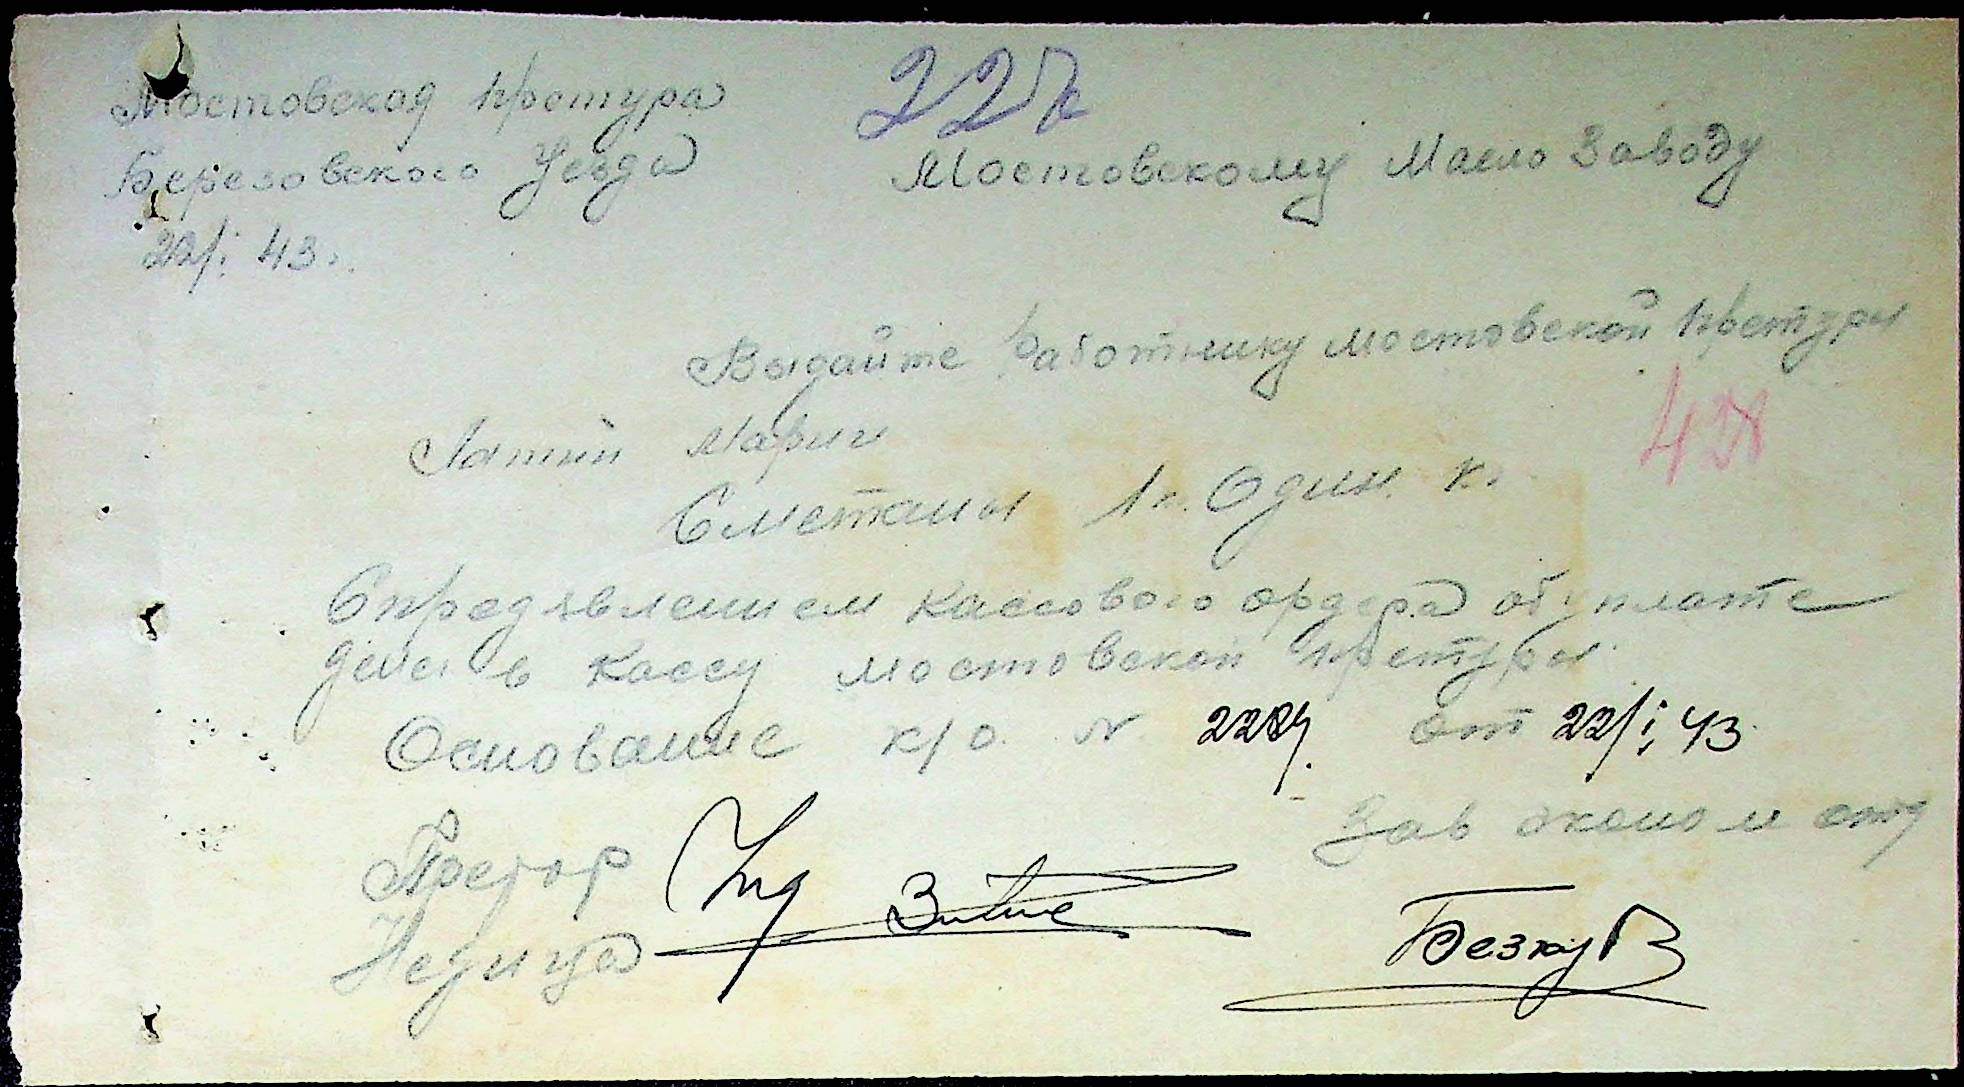 Мостовская Претура
Березовского Уезда
22/I 43.
Мостовскому Масло Заводу
Выдайте Работнику мостовской Претуры
Марии
Сметаны 1 к. Один к.
С предявлением кассового ордера об уплате
денег в кассу мостовской Претуры.
Основание к/о. N. от 22/I 43
Претор
Зав эконом отд
Недица